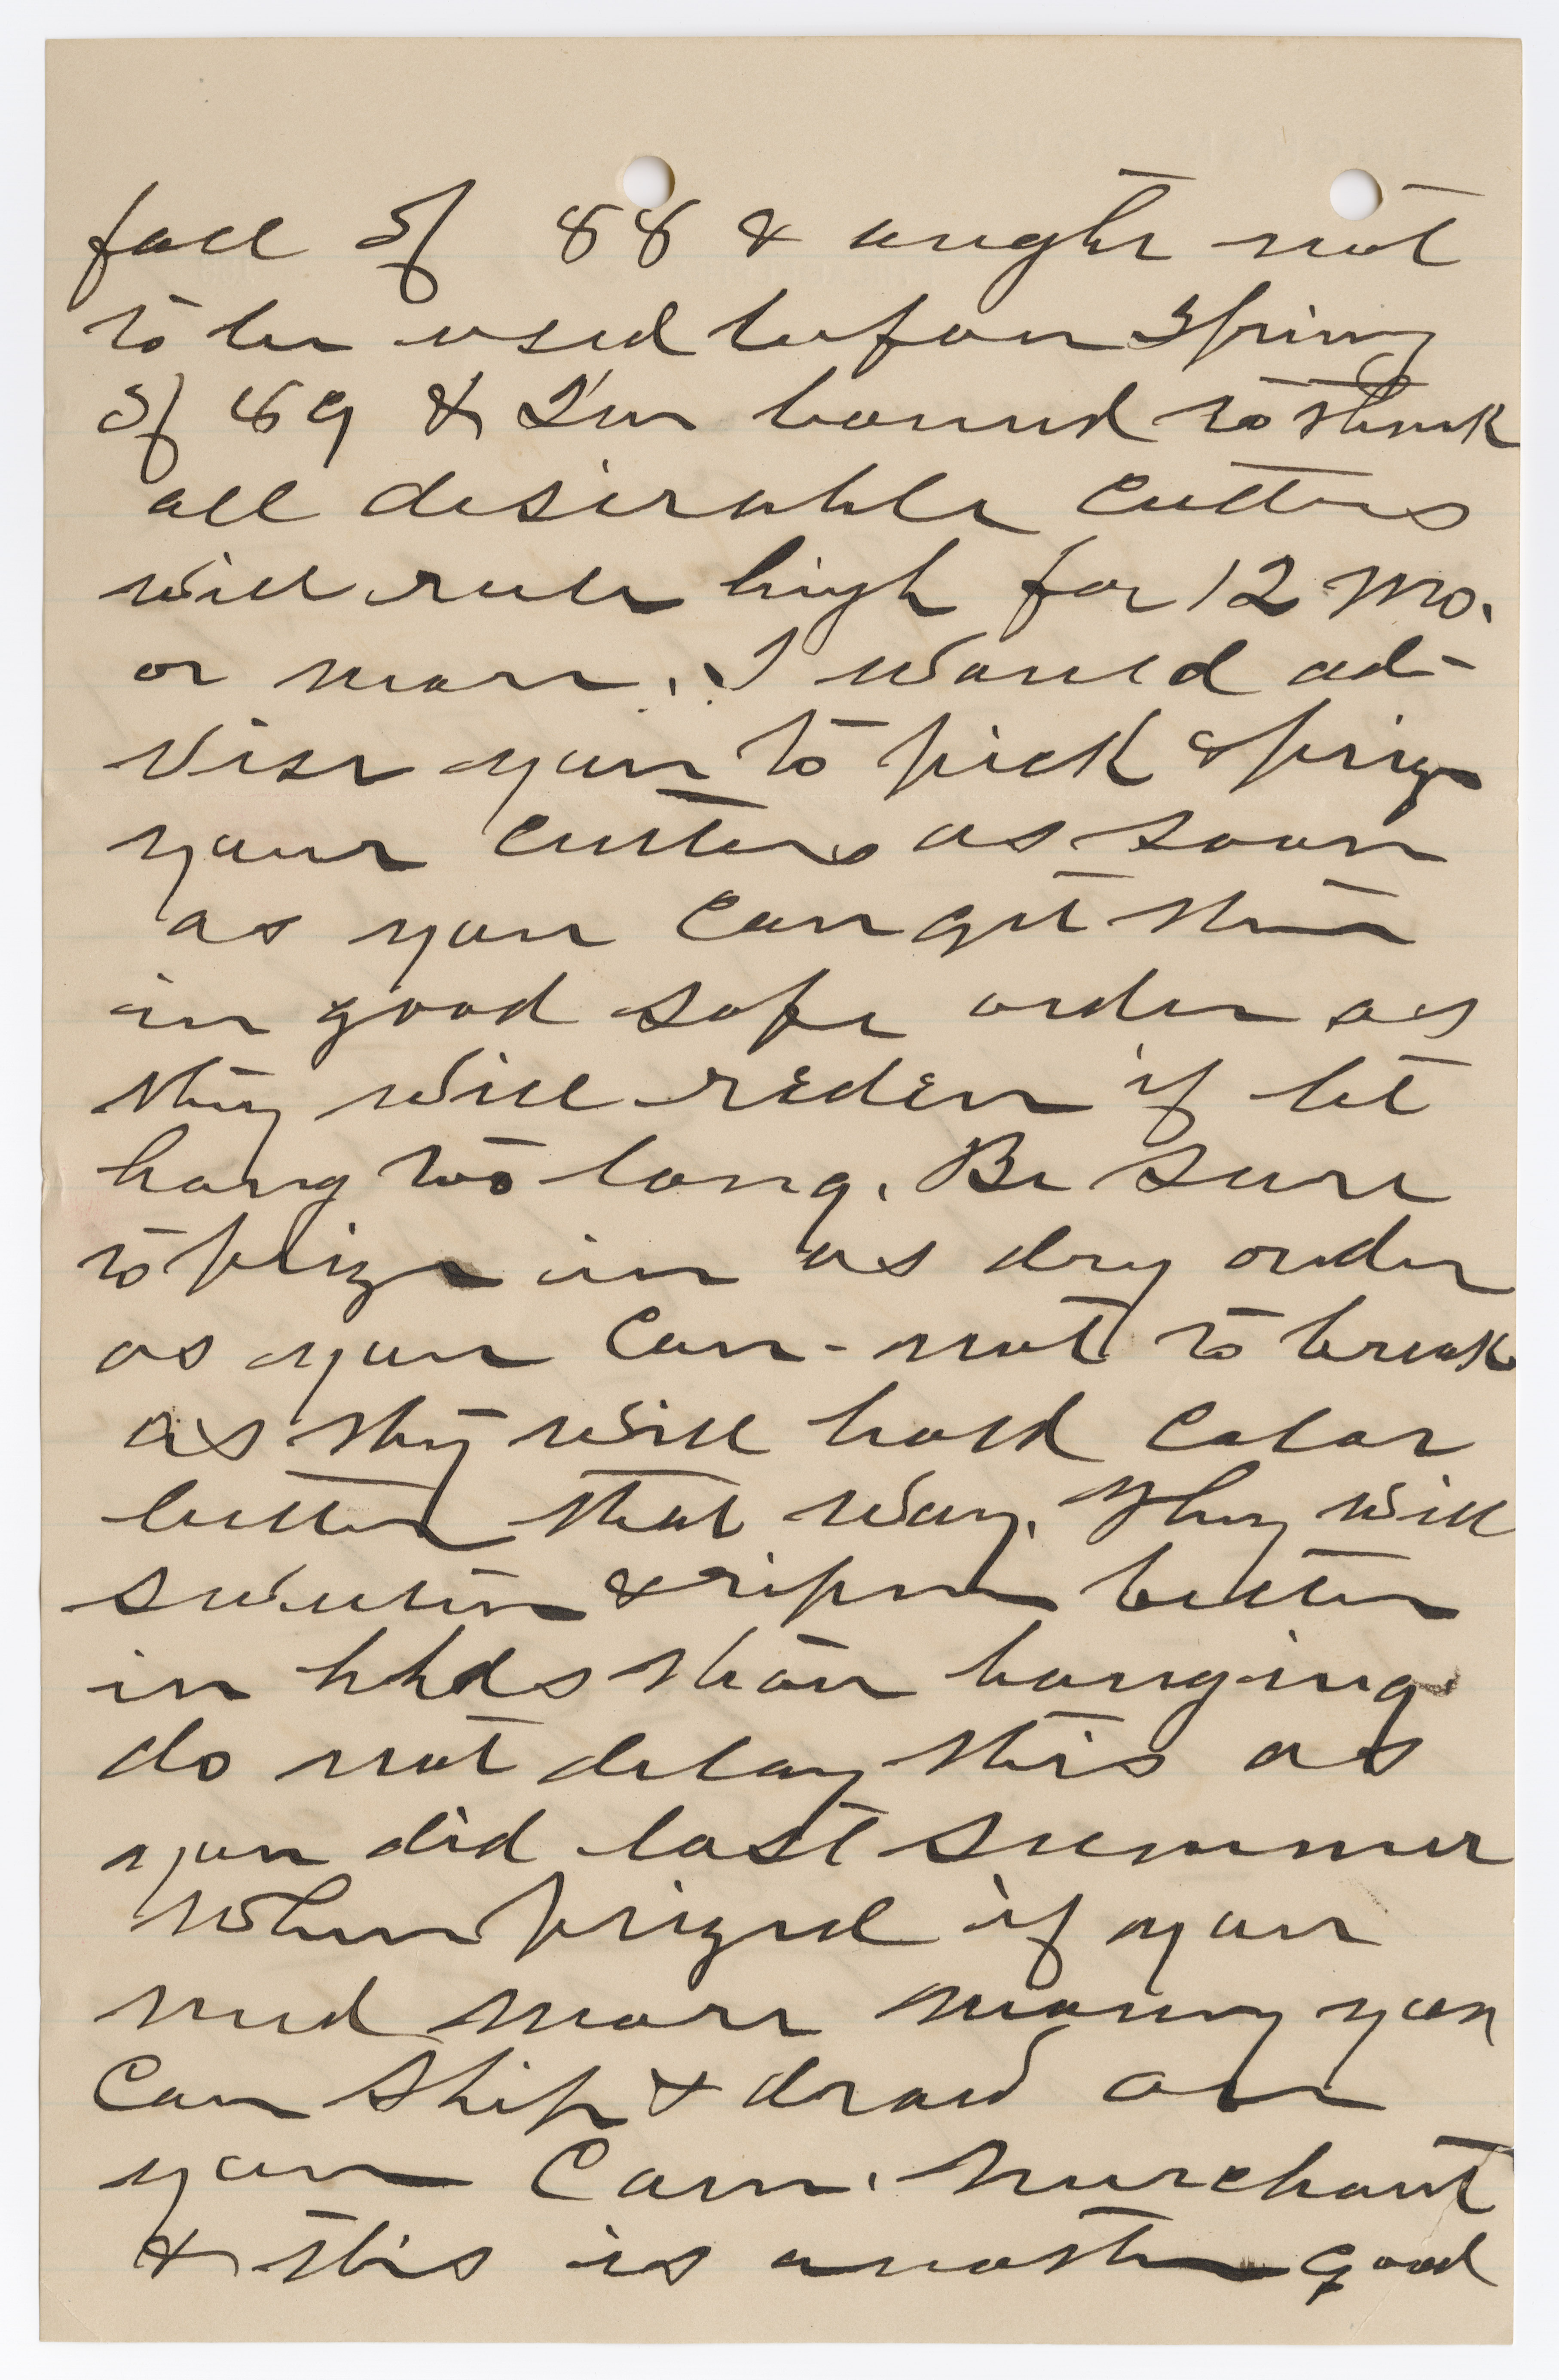 fall of 88 & ought not
to be used before Spring
of 89 & I'm bound to think
all desirable Cutters
will rule high for 12 mo.
or more. I would ad-
vise you to pick & prize
your Cutters as soon
as you can get them
in good safe order as
they will redden if let
hang too long. Be sure
to prize in as dry order
as you can - not to break
as they will hold color
better that way. They will
sweeten & ripen better
in hhds than hanging
do not delay this as
you did last summer
When prized if you
need more money you
can ship & draw on
your Com. merchant
& this is another good